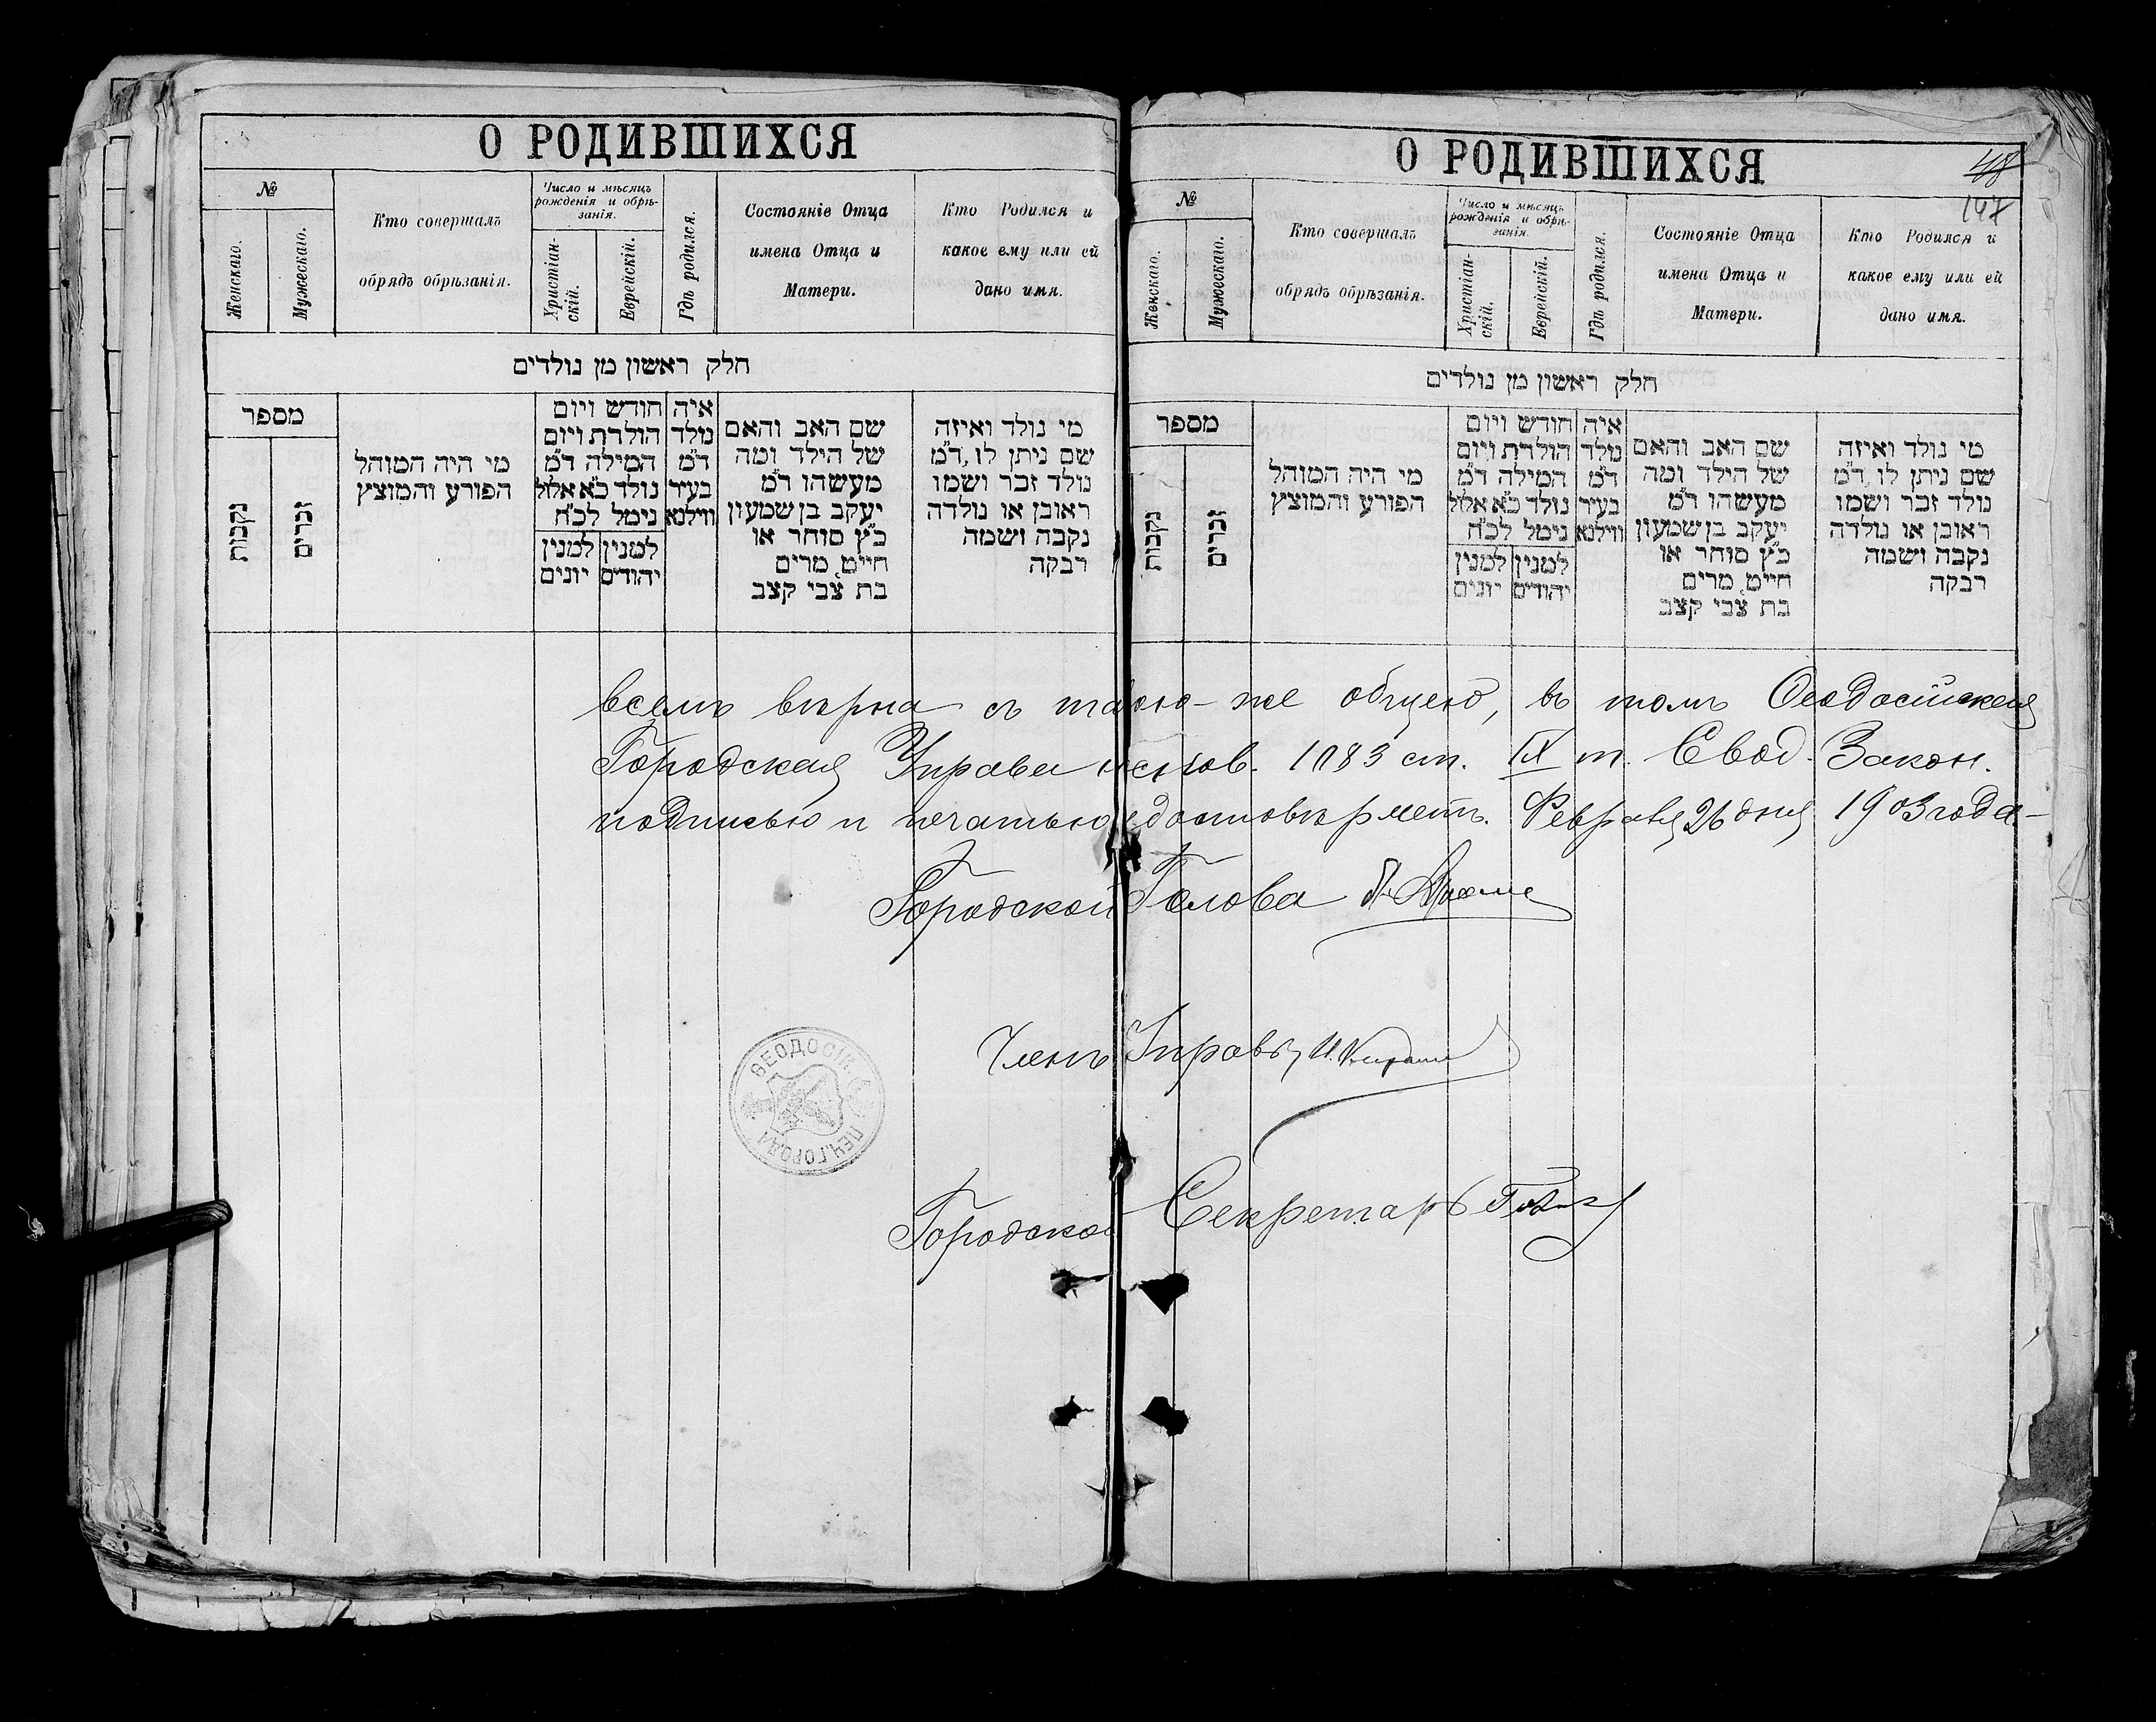 О РОДИВШИХСЯ
№
Женскаго.
Мужескаго.
Кто совершалъ
обрядъ обрѣзанія.
Число и мѣсяцъ
рожденія и обрѣ-
занія.
Христіан-
скій.
Еврейскій.
Гдѣ родился.
Состояніе Отца
имена Отца и
Матери.
Кто Родился и
какое ему или ей
дано имя.
חלק ראשון מן נולדים
מספר
נקבות
זכרים
מי היה המוהל
הפורע והמוצץ
חודש ויום
הולדת ויום
המילה ד״מ
נולד כ״א אלול
נימל לכ״ח
למנין
יהודים
למנין
יונים
איה
נולד
ד״מ
בעיר
ווילנא
שם האב והאם
של הילד ומה
מעשהו ד״מ
יעקב בן שמעון
כ״ץ סוחר או
חייט, מרים
בת צבי קצב
מי נולד ואיזה
שם ניתן לו, ד״מ
נולד זכר ושמו
ראובן או נולדה
נקבה ושמה
רבקה
О РОДИВШИХСЯ
48
147
№
Женскаго.
Мужескаго.
Кто совершалъ
обрядъ обрѣзанія.
Число и мѣсяцъ
рожденія и обрѣ-
занія.
Христіан-
скій.
Еврейскій.
Гдѣ родился.
Состояніе Отца
имена Отца и
Матери.
Кто Родился и
какое ему или ей
дано имя.
חלק ראשון מן נולדים
מספר
נקבות
זכרים
מי היה המוהל
הפורע והמוצץ
חודש ויום
הולדת ויום
המילה ד״מ
נולד כ״א אלול
נימל לכ״ח
למנין
יהודים
למנין
יונים
איה
נולד
ד״מ
בעיר
ווילנא
שם האב והאם
של הילד ומה
מעשהו ד״מ
יעקב בן שמעון
כ״ץ סוחר או
חייט, מרים
בת צבי קצב
מי נולד ואיזה
שם ניתן לו, ד״מ
נולד זכר ושמו
ראובן או נולדה
נקבה ושמה
רבקה
всемъ вѣрна съ такою-же общею, въ томъ Ѳеодосійская
Городская Управа на основ. 1083 ст. IX т. Свод. Закон.
подписью и печатью удостовѣряетъ. Февраля 26 дня 1903 года.
Городской Голова
Членъ Управы
ѲЕОДОСІЙ.
ПЕЧ. ГОРОД.
Городской Секретарь